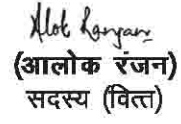 Alok Ranjan
(आलोक रंजन)
सदस्य (वित्त)